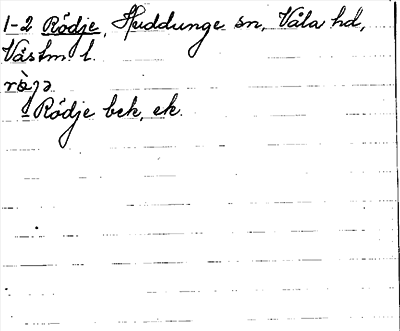 1-2 Rödje, Huddunge sn, Våla hd,
Västm l.
Rödje bek, ek.